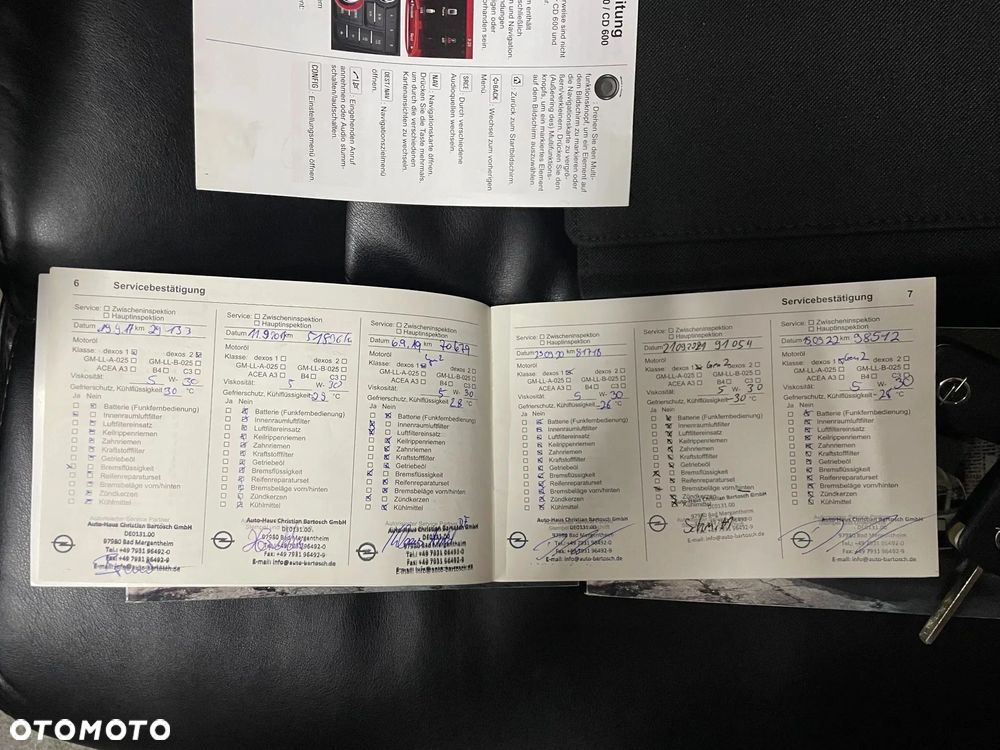 itung
0 / CD 600
erweise sind nicht
er CD 600 und
m enthält
schließlich
n und Navigation.
ndungen
igen oder
orhanden sein.
: Drehen Sie den Multi-
funktionsknopf, um ein Element auf
dem Bildschirm zu markieren oder
die Navigationskarte zu vergrö-
ßern/verkleinern. Drücken Sie den
(Außenring des) Multifunktions-
knopfs, um ein markiertes Element
auf dem Bildschirm auszuwählen.
: Zurück zum Startbildschirm.
BACK : Wechsel zum vorherigen
Menü
SRCE : Durch verschiedene
Audioquellen wechseln.
NAV : Navigationskarte öffnen.
Drücken Sie die Taste mehrmals,
um durch die verschiedenen
Kartenansichten zu wechseln.
DEST/NAV : Navigationszielmenü
öffnen.
: Eingehenden Anruf
annehmen oder Audio stumm-
schalten/lautschalten.
CONFIG : Einstellungsmenü öffnen.
6 Servicebestätigung
Service: Zwischeninspektion
Hauptinspektion
Datum 19.9.17 km 29 133
Motoröl
Klasse: dexos 1 dexos 2
GM-LL-A-025 GM-LL-B-025
ACEA A3 B4 C3
Viskosität: 5 W- 30
Gefrierschutz, Kühlflüssigkeit 30 °C
Ja Nein
Batterie (Funkfernbedienung)
Innenraumluftfilter
Luftfiltereinsatz
Keilrippenriemen
Zahnriemen
Kraftstofffilter
Getriebeöl
Bremsflüssigkeit
Reifenreparaturset
Bremsbeläge vorn/hinten
Zündkerzen
Kühlmittel
Auto-Haus Christian Bartosch GmbH
DE0131.00
97980 Bad Mergentheim
Tel.: +49 7931 96492-0
Fax: +49 7931 96492-9
E-mail: info@auto-bartosch.de
Service: Zwischeninspektion
Hauptinspektion
Datum km
Motoröl
Klasse: dexos 1 dexos 2
GM-LL-A-025 GM-LL-B-025
ACEA A3 B4 C3
Viskosität: 5 W- 30
Gefrierschutz, Kühlflüssigkeit °C
Ja Nein
Batterie (Funkfernbedienung)
Innenraumluftfilter
Luftfiltereinsatz
Keilrippenriemen
Zahnriemen
Kraftstofffilter
Getriebeöl
Bremsflüssigkeit
Reifenreparaturset
Bremsbeläge vorn/hinten
Zündkerzen
Kühlmittel
Auto-Haus Christian Bartosch GmbH
DE0131.00
97980 Bad Mergentheim
Fax: +49 7931 96492-9
E-mail: info@auto-bartosch.de
Service: Zwischeninspektion
Hauptinspektion
Datum 6.9.19 km 70679
Motoröl
Klasse: dexos 1 dexos 2
GM-LL-A-025 GM-LL-B-025
ACEA A3 B4 C3
Viskosität: 5 W- 30
Gefrierschutz, Kühlflüssigkeit 28 °C
Ja Nein
Batterie (Funkfernbedienung)
Innenraumluftfilter
Luftfiltereinsatz
Keilrippenriemen
Zahnriemen
Kraftstofffilter
Getriebeöl
Bremsflüssigkeit
Reifenreparaturset
Bremsbeläge vorn/hinten
Zündkerzen
Kühlmittel
Auto-Haus Christian Bartosch GmbH
Tel.: +49 7931 96492-0
Fax: +49 7931 96492-9
E-mail: info@auto-bartosch.de
Servicebestätigung 7
Service: Zwischeninspektion
Hauptinspektion
Datum 23.09.20 km 81718
Motoröl
Klasse: dexos 1 dexos 2
GM-LL-A-025 GM-LL-B-025
ACEA A3 B4 C3
Viskosität: 5 W- 30
Gefrierschutz, Kühlflüssigkeit -26 °C
Ja Nein
Batterie (Funkfernbedienung)
Innenraumluftfilter
Luftfiltereinsatz
Keilrippenriemen
Zahnriemen
Kraftstofffilter
Getriebeöl
Bremsflüssigkeit
Reifenreparaturset
Bremsbeläge vorn/hinten
Zündkerzen
Kühlmittel
Auto-Haus Christian Bartosch GmbH
DE0131.00
97980 Bad Mergentheim
Tel.: +49 7931 96492-0
Fax: +49 7931 96492-9
E-mail: info@auto-bartosch.de
Service: Zwischeninspektion
Hauptinspektion
Datum 21.09.2021 91 054
Motoröl
Klasse: dexos 1 Gen 2
GM-LL-A-025 GM-LL-B-025
ACEA A3 B4 C3
Viskosität: 5 W- 30
Gefrierschutz, Kühlflüssigkeit -30 °C
Ja Nein
Batterie (Funkfernbedienung)
Innenraumluftfilter
Luftfiltereinsatz
Keilrippenriemen
Zahnriemen
Kraftstofffilter
Getriebeöl
Bremsflüssigkeit
Reifenreparaturset
Bremsbeläge vorn/hinten
Zündkerzen
Kühlmittel
Auto-Haus Christian Bartosch GmbH
DE0131.00
97980 Bad Mergentheim
Fax: +49 7931 96492-9
E-mail: info@auto-bartosch.de
Service: Zwischeninspektion
Hauptinspektion
Datum 15.09.22 km 98512
Motoröl
Klasse: dexos 1 Gen 2 dexos 2
GM-LL-A-025 GM-LL-B-025
ACEA A3 B4 C3
Viskosität: 5 W- 30
Gefrierschutz, Kühlflüssigkeit -26 °C
Ja Nein
Batterie (Funkfernbedienung)
Innenraumluftfilter
Luftfiltereinsatz
Keilrippenriemen
Zahnriemen
Kraftstofffilter
Getriebeöl
Bremsflüssigkeit
Reifenreparaturset
Bremsbeläge vorn/hinten
Zündkerzen
Kühlmittel
Auto-Haus Christian Bartosch GmbH
DE0131.00
97980 Bad Mergentheim
Tel.: +49 7931 96492-0
Fax: +49 7931 96492-9
E-mail: info@auto-bartosch.de
OTOMOTO